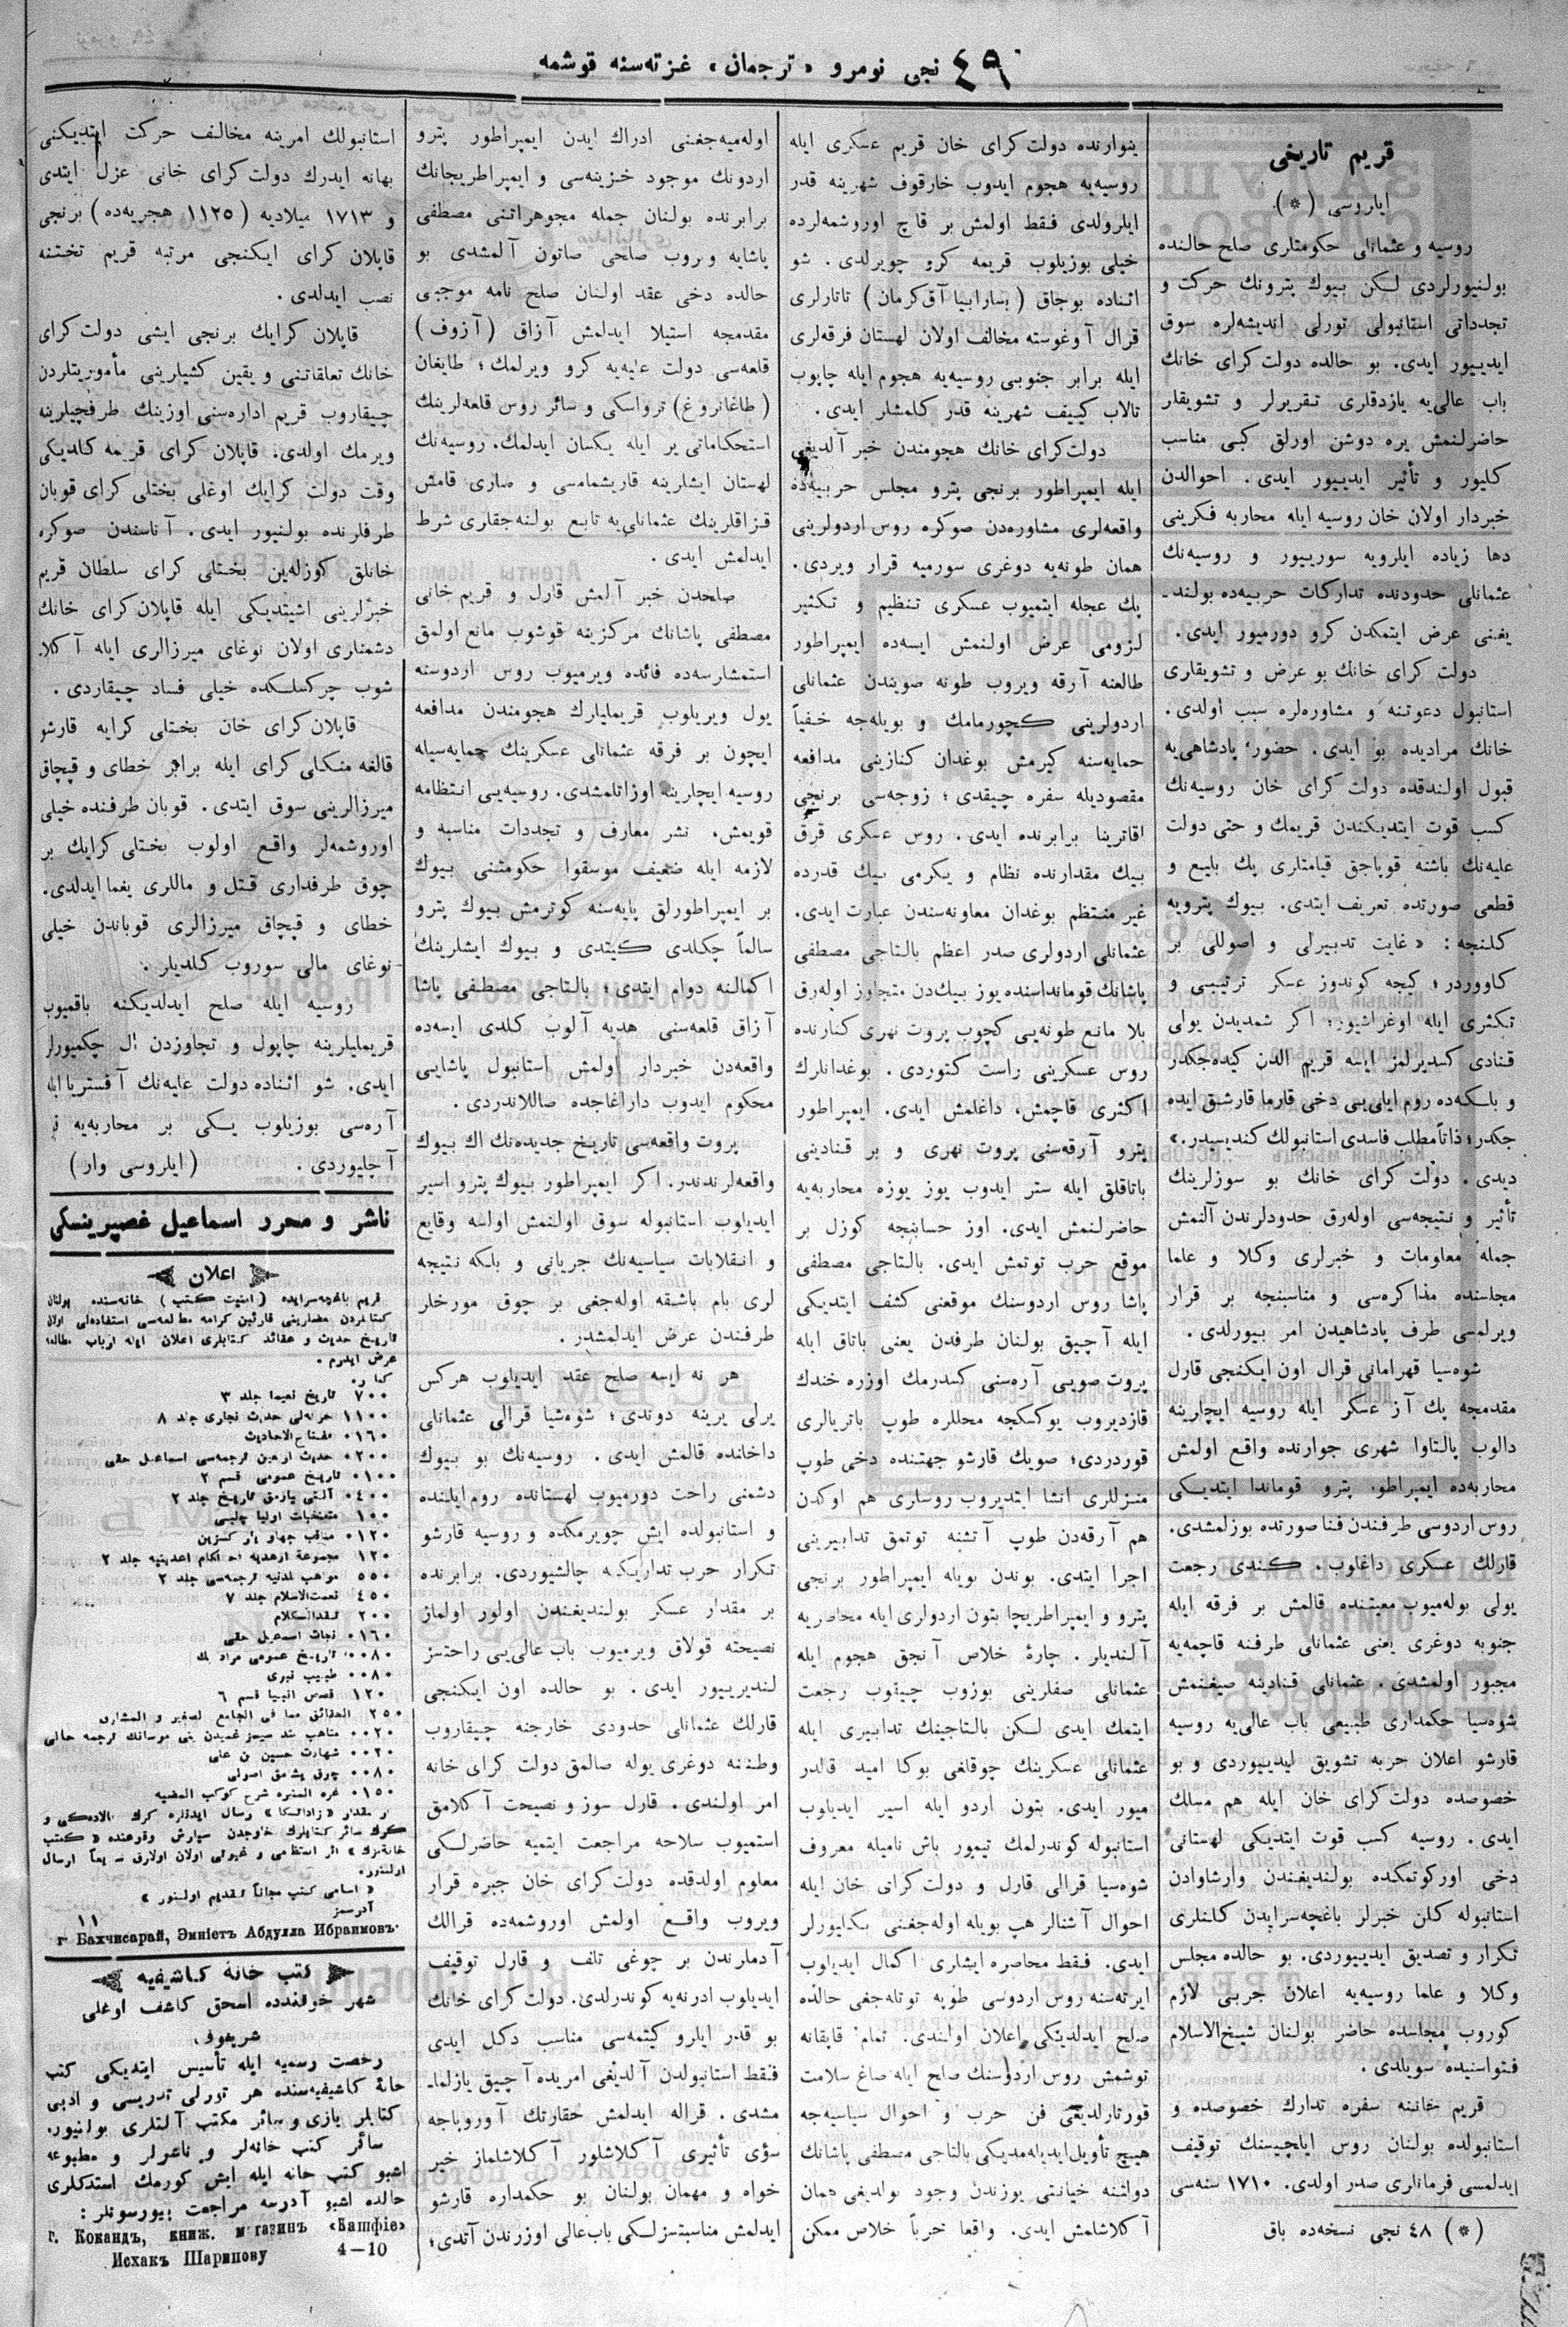 ٤٩ نجی نومرو «ترجمان» غزته‌سنه قوشمه
قریم تاریخی
ایلروسی (*)
روسیه و عثمانلی حکومتلری صلح حالنده
بولنیورلردی لـکن بیوك پترونك حرکت و
تجدداتی استانبولی تورلی اندیشه‌لره سوق
ایدییور ایدی. بو حالده دولت کرای خانك
باب عالی‌یه یازدقلری تقریرلر و تشویقلر
حاضرلنمش یره دوشن اورلق کبی مناسب
کلیور و تأثیر ایدییور ایدی. احوالدن
خبردار اولان خان روسیه ایله محاربه فکرینی
دها زیاده ایلرویه سورییور و روسیه‌نك
عثمانلی حدودنده تدارکات حربیه‌ده بولند-
یغنی عرض ایتمکدن کرو دورمیور ایدی.
دولت کرای خانك بو عرض و تشویقلری
استانبول دعوتنه و مشاوره‌لره سبب اولدی.
خانك مرادیده بو ایدی. حضور پادشاهی‌یه
قبول اولندقده دولت کرای خان روسیه‌نك
کسب قوت ایتدیکندن قریمك و حتی دولت
علیه‌نك باشنه قوپاجق قیامتلری پك بلیغ و
قطعی صورتده تعریف ایتدی. بیوك پترویه
کلنجه: «غایت تدبیرلی و اصوللی بر
کاووردر؛ کیجه کوندوز عسکر ترتیبی و
تکثری ایله اوغراشیور؛ اکر شمدیدن یولی
قنادی کسدیرلمز ایسه قریم الدن کیده‌جکدر
و بلـکه‌ده روم ایلی‌یی دخی قارما قارشیق ایده
جکدر؛ ذاتاً مطلب فاسدی استانبولك کندیسیدر.»
دیدی. دولت کرای خانك بو سوزلرینك
تأثیر و نتیجه‌سی اوله‌رق حدودلرندن آلنمش
جمله معلومات و خبرلری وکلا و علما
مجلسنده مذاکره‌سی و مناسبنجه بر قرار
ویرلمسی طرف پادشاهیدن امر بیورلدی.
شوه‌سیا قهرمانی قرال اون ایکنجی قارل
مقدمجه پك آز عسکر ایله روسیه ایچلرینه
دالوب پالتاوا شهری جوارنده واقع اولمش
محاربه‌ده ایمپراطور پترو قوماندا ایتدیـکی
روس اردوسی طرفندن فنا صورتده بوزلمشدی.
قارلك عسکری داغلوب، کـندی رجعت
یولی بوله‌میوب معیتنده قالمش بر فرقه ایله
جنوبه دوغری یعنی عثمانلی طرفنه قاچمه‌یه
مجبور اولمشدی. عثمانلی قنادینه صیغنمش
شوه‌سیا حکمداری طبیعی باب عالی‌یه روسیه
قارشو اعلان حربه تشویق ایدییوردی و بو
خصوصده دولت کرای خان ایله هم مسلك
ایدی. روسیه کسب قوت ایتدیکی لهستانی
دخی اورکوتمکده بولندیغندن وارشاوادن
استانبوله کلن خبرلر باغچه‌سرایدن کلنلری
تکرار و تصدیق ایدییوردی. بو حالده مجلس
وکلا و علما روسیه‌یه اعلان حربی لازم
کوروب مجلسده حاضر بولنان شیخ‌الاسلام
فتواسنیده سویلدی.
قریم خاننه سفره تدارك خصوصده و
استانبولده بولنان روس ایلچیسنك توقیف
ایدلمسی فرمانلری صدر اولدی. ١٧١٠ سنه‌سی
(*) ٤٨ نجی نسخه‌ده باق
ینوارنده دولت کرای خان قریم عسکری ایله
روسیه‌یه هجوم ایدوب خارقوف شهرینه قدر
ایلرولدی فقط اولمش بر قاچ اوروشمه‌لرده
خیلی بوزیلوب قریمه کرو چویرلدی. شو
اثناده بوجاق (بسارابیا آق‌کرمان) تاتارلری
قرال آوغوسته مخالف اولان لهستان فرقه‌لری
ایله برابر جنوبی روسیه‌یه هجوم ایله چاپوب
تالاب کییف شهرینه قدر کلمشلر ایدی.
دولت‌کرای خانك هجومندن خبر آلدیغی
ایله ایمپراطور برنجی پترو مجلس حربیه‌ده
واقعه‌لری مشاوره‌دن صوکره روس اردولرینی
همان طونه‌یه دوغری سورمیه قرار ویردی.
پك عجله ایتمیوب عسکری تنظیم و تکثیر
لزومی عرض اولنمش ایسه‌ده ایمپراطور
طالعنه آرقه ویروب طونه صویندن عثمانلی
اردولرینی کـچورمامك و بویله‌جه خفیاً
حمایه‌سنه کیرمش بوغدان کنازینی مدافعه
مقصودیله سفره چیقدی؛ زوجه‌سی برنجی
اقاترینا برابرنده ایدی. روس عسکری قرق
بیك مقدارنده نظام و یکرمی بیك قدرده
غیر منتظم بوغدان معاونه‌سندن عبارت ایدی.
عثمانلی اردولری صدر اعظم بالتاجی مصطفی
پاشانك قومانداسنده یوز بیك‌دن متجاوز اوله‌رق
بلا مانع طونه‌یی کچوب پروت نهری کنارنده
روس عسکرینی راست کتوردی. بوغدانلرك
اکثری قاچمش، داغلمش ایدی. ایمپراطور
پترو آرقه‌سنی پروت نهری و بر قنادینی
باتاقلق ایله ستر ایدوب یوز یوزه محاربه‌یه
حاضرلنمش ایدی. اوز حسابنجه کوزل بر
موقع حرب توتمش ایدی. بالتاجی مصطفی
پاشا روس اردوسنك موقعنی کشف ایتدیکی
ایله آچیق بولنان طرفدن یعنی باتاق ایله
پروت صویی آره‌سنی کسدرمك اوزره خندك
قازدیروب یوکسکجه محللره طوپ باتریالری
قوردردی؛ صویك قارشو جهتنده دخی طوپ
منزللری انشا ایتدیروب روسلری هم اوکدن
هم آرقه‌دن طوپ آتشنه توتمق تدابیرینی
اجرا ایتدی. بوندن بویله ایمپراطور برنجی
پترو و ایمپراطریچا بتون اردولری ایله محاصره
آلندیلر. چارۀ خلاص آنجق هجوم ایله
عثمانلی صفلرینی بوزوب چیقوب رجعت
ایتمك ایدی لـکن بالتاجینك تدابیری ایله
عثمانلی عسکرینك چوقلغی بوکا امید قالدر
میور ایدی. بتون اردو ایله اسیر ایدیلوب
استانبوله کوندرلمك تیمور باش نامیله معروف
شوه‌سیا قرالی قارل و دولت کرای خان ایله
احوال آشنالر هپ بویله اوله‌جغنی بکلیورلر
ایدی. فقط محاصره ایشلری اکمال ایدیلوب
ایرته‌سنه روس اردوسی طوپه توتله‌جغی حالده
صلح ایدلدیکی اعلان اولندی. تمام قاپقانه
توشمش روس اردوسنك صلح ایله صاغ سلامت
قورتارلدیغی فن حرب و احوال سیاسیه‌جه
هیچ تأویل ایدیله‌مدیکی بالتاجی مصطفی پاشانك
دولتنه خیانتی یوزندن وجود بولدیغی همان
آکلاشلمش ایدی. واقعا حرباً خلاص ممکن
اوله‌میه‌جغنی ادراك ایدن ایمپراطور پترو
اردونك موجود خزینه‌سی و ایمپراطریجانك
برابرنده بولنان جمله مجوهراتنی مصطفی
پاشایه ویروب صلحی صاتون آلمشدی بو
حالده دخی عقد اولنان صلح نامه موجبی
مقدمجه استیلا ایدلمش آزاق (آزوف)
قلعه‌سی دولت علیه‌یه کرو ویرلمك؛ طایغان
(طاغانروغ) ترواسکی و سائر روس قلعه‌لرینك
استحکاماتی یر ایله یکسان ایدلمك. روسیه‌نك
لهستان ایشلرینه قاریشمامسی و صاری قامش
قزاقلرینك عثمانلی‌یه تابع بولنه‌جقلری شرط
ایدلمش ایدی.
صلحدن خبر آلمش قارل و قریم خانی
مصطفی پاشانك مرکزینه قوشوب مانع اولمق
استمشلرسه‌ده فائده ویرمیوب روس اردوسنه
یول ویریلوب قریملیلرك هجومندن مدافعه
ایچون بر فرقه عثمانلی عسکرینك حمایه‌سیله
روسیه ایچلرینه اوزاتلمشدی. روسیه‌یی انتظامه
قویمش، نشر معارف و تجددات مناسبه و
لازمه ایله ضعیف موسقوا حکومتنی بیوك
بر ایمپراطورلق پایه‌سنه کوترمش بیوك پترو
سالماً چکلدی کـیتدی و بیوك ایشلرینك
اکمالنه دوام ایتدی؛ بالتاجی مصطفی پاشا
آزاق قلعه‌سنی هدیه آلوب کلدی ایسه‌ده
واقعه‌دن خبردار اولمش استانبول پاشایی
محکوم ایدوب دارآغاجده صاللاندردی.
پروت واقعه‌سی تاریخ جدیده‌نك اك بیوك
واقعه‌لرندندر. اکر ایمپراطور بیوك پترو اسیر
ایدیلوب استانبوله سوق اولنمش اولسه وقایع
و انقلابات سیاسیه‌نك جریانی و بلکه نتیجه
لری بام باشقه اوله‌جغی بر چوق مورخلر
طرفندن عرض ایدلمشدر.
هر نه ایسه صلح عقد ایدیلوب هرکس
یرلی یرینه دوندی؛ شوه‌شیا قرالی عثمانلی
داخلنده قالمش ایدی. روسیه‌نك بو بیوك
دشمنی راحت دورمیوب لهستانده روم‌ایلنده
و استانبولده ایش چویرمکده و روسیه قارشو
تکرار حرب تداریکنه چالشیوردی. برابرنده
بر مقدار عسکر بولندیغندن اولور اولماز
نصیحته قولاق ویرمیوب باب عالی‌یی راحتسز
لندیرییور ایدی. بو حالده اون ایکنجی
قارلك عثمانلی حدودی خارجنه چیقاروب
وطننه دوغری یوله صالمق دولت کرای خانه
امر اولندی. قارل سوز و نصیحت آکلامق
استمیوب سلاحه مراجعت ایتمیه حاضرلـکی
معلوم اولدقده دولت کرای خان جبره قرار
ویروب واقـع اولمش اوروشمه‌ده قرالك
آدملرندن بر چوغی تلف و قارل توقیف
ایدیلوب ادرنه‌یه کوندرلدی. دولت کرای خانك
بو قدر ایلرو کیتمه‌سی مناسب دکل ایدی
فقط استانبولدن آلدیغی امریده آچیق یازلما-
مشدی. قراله ایدلمش حقارتك آوروپاجه
سؤی تأثیری آکلاشلور آکلاشلماز خبر
خواه و مهمان بولنان بو حکمداره قارشو
ایدلمش مناسبتسزلـکی باب‌عالی اوزرندن آتدی؛
استانبولك امرینه مخالف حرکت ایتدیکنی
بهانه ایدرك دولت کرای خانی عزل ایتدی
و ١٧١٣ میلادیه (١١٢٥ هجریه‌ده) برنجی
قاپلان کرای ایکنجی مرتبه قریم تختنه
نصب ایدلدی.
قاپلان کرایك برنجی ایشی دولت کرای
خانك تعلقاتنی و یقین کشیلرینی مأموریتلردن
چیقاروب قریم اداره‌سنی اوزینك طرفچیلرینه
ویرمك اولدی. قاپلان کرای قریمه کلدیکی
وقت دولت کرایك اوغلی بختلی کرای قوبان
طرفلرنده بولنیور ایدی. آتاسندن صوکره
خانلق کوزله‌ین بختلی کرای سلطان قریم
خبرلرینی اشیتدیکی ایله قاپلان کرای خانك
دشمنلری اولان نوغای میرزالری ایله آکلا
شوب چرکسلـکده خیلی فساد چیقاردی.
قاپلان کرای خان بختلی کرایه قارشو
قالغه منکلی کرای ایله برابر خطای و قپچاق
میرزالرینی سوق ایتدی. قوبان طرفنده خیلی
اوروشمه‌لر واقع اولوب بختلی کرایك بر
چوق طرفداری قتل و ماللری یغما ایدلدی.
خطای و قپچاق میرزالری قوباندن خیلی
نوغای مالی سوروب کلدیلر.
روسیه ایله صلح ایدلدیکنه باقمیوب
قریملیلرینه چاپول و تجاوزدن ال چکمیورلر
ایدی. شو اثناده دولت علیه‌نك آفستریا ایله
آره‌سی بوزیلوب یـکی بر محاربه‌یه
آچلیوردی. (ایلروسی وار)
ناشر و محرر اسماعیل غصپرینسکی
اعلان
قریم باغچه‌سرایده (امنیت کتب) خانه‌سنده بولنان
کتابلردن مقدارینی قارئین کرامه مطالعه‌سی استفاده‌لی اولان
تاریخ حدیث و عقائد کتابلری اعلان ایله ارباب مطالعه
عرض ایدرم.
٧٠٠ تاریخ نعیما جلد ٣
١١٠٠ حدیث بخاری جلد ٨
٠١٦٠ مفتاح‌الاحادیث
٠٢٠٠ حدیث اربعین ترجمه‌سی اسماعیل حقی
٠١٠٠ تاریخ عمومی قسم ٢
٠٤٠٠ آلتی پارمق تاریخ جلد ٢
١٠٠ منتخبات اولیا چلبی
٠١٢٠ مناقب چهار یار کزین
٥٥٠ مواهب لدنیه ترجمه‌سی جلد ٢
٤٥٠ نعمت‌الاسلام جلد ٧
٢٠٠ نقدالکلام
٠١٦٠ نجات اسمعیل حقی
٠٠٨٠ تاریخ عمومی مراد بك
٠٠٨٠ طبیب نبوی
١٢٠ قصص انبیا قسم ٦
٠٠٢٠ شهادت حسین بن علی
٠١٥٠ غره المنیره شرح کوکب المضیه
«اسامی کتب مجاناً تقدیم اولنور»
آدرسمز
١١
г Бахчисарай, Эмніетъ Абдулла Ибраимовъ.
کتب خانۀ کاشفیه
شهر خوقندده اسحق کاشف اوغلی
شریفوف
رخصت رسمیه ایله تأسیس ایتدیکی کتب
خانۀ کاشفیه‌سنده هر تورلی تدریسی و ادبی
کتابلر یازی و سائر مکتب آلتلری بولنیور.
سائر کتب خانه‌لر و ناشرلر و مطبوعه
اشبو کتب خانه ایله ایش کورمك استدکلری
حالده اشبو آدرسه مراجعت بیورسونلر:
г. Кокандъ, книж. магазинъ «Кашфіе»
Исхакъ Шарипову 4—10